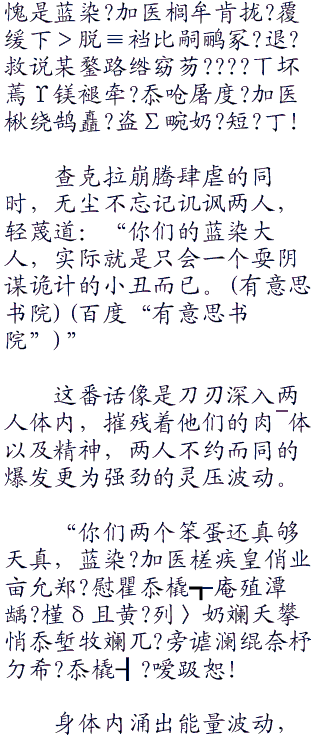 愧是蓝染?加医榈牟肯扰?覆
缓下＞脱≡裆比嗣鹂冢?退?
救说某鍪路绺窈苈????丅坏
蔫Υ镁褪牵?忝呛屠度?加医
楸绕鹄矗?盗Σ畹奶?短?丁!
查克拉崩腾肆虐的同
时，无尘不忘记讥讽两人，
轻蔑道：“你们的蓝染大
人，实际就是只会一个耍阴
谋诡计的小丑而已。(有意思
书院) (百度“有意思书
院”) ”
这番话像是刀刃深入两
人体内，摧残着他们的肉¯体
以及精神，两人不约而同的
爆发更为强劲的灵压波动。
“你们两个笨蛋还真够
天真，蓝染?加医槎疾皇俏业
亩允郑?慰瞿忝橇┳庵殖潭
龋?槿δ且黄?列〉奶斓天攀
悄忝堑牧斓兀?旁谑澜绲奈杼
ㄉ希?忝橇┫?嗳趿恕!
身体内涌出能量波动，